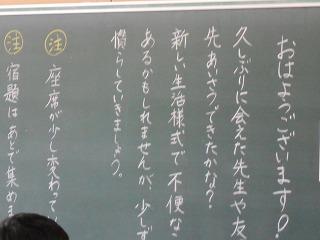 おはようございます!
久しぶりに会えた先生や友
先あいさつできたかな?
新しい生活様式で不便な
あるかもしれませんが、少しず
慣らしていきましょう。
注 座席が少し変わってい
注 宿題はあとで集め